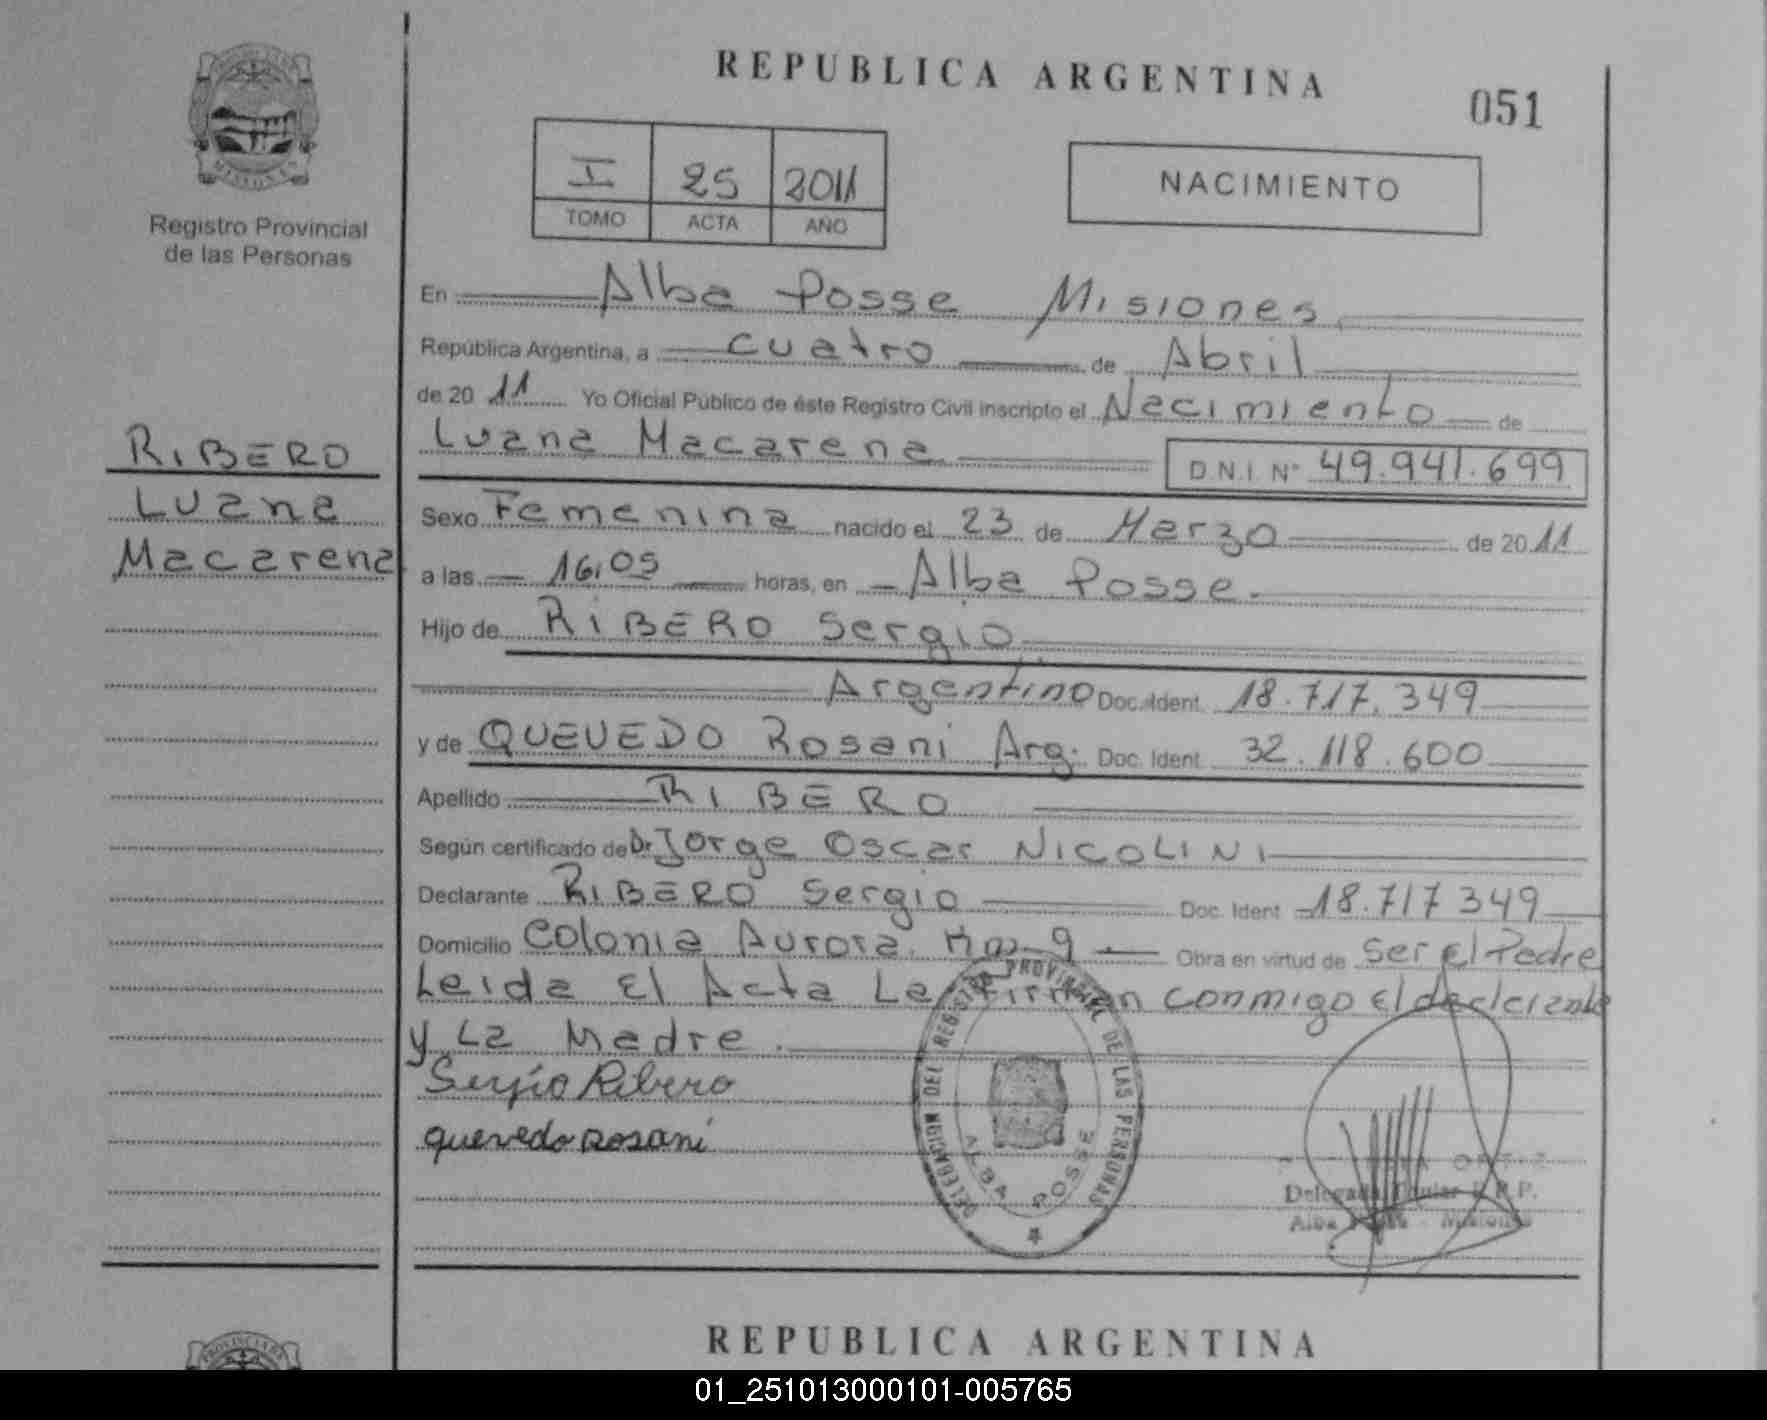 REPUBLICA ARGENTINA
051
MISIONES
Registro Provincial
de las Personas
I 25 2011
TOMO ACTA AÑO
NACIMIENTO
En Alba Posse Misiones
República Argentina, a cuatro de Abril
de 20 11 Yo Oficial Público de éste Registro Civil inscripto el Nacimiento de
Luana Macarena D.N.I. N° 49.941.699
RIBERO
Luana
Macarena
Sexo Femenina nacido el 23 de Marzo de 20 11
a las 16,05 horas, en Alba Posse.
Hijo de RIBERO Sergio
Argentino Doc. Ident. 18.717.349
y de QUEVEDO Rosani Arg. Doc. Ident. 32.118.600
Apellido RIBERO
Según certificado de Dr Jorge Oscar NICOLINI
Declarante RIBERO Sergio Doc. Ident 18.717 349
Domicilio Colonia Aurora, 9 Obra en virtud de Ser El Padre
Leida El Acta La Firman conmigo El declarante
y La Madre.
Sergio Ribero
quevedo rosani
DELEGACION DEL REGISTRO PROVINCIAL DE LAS PERSONAS
ALBA POSSE
Delegada Titular R.P.P.
Alba Posse - Misiones
REPUBLICA ARGENTINA
01_251013000101-005765